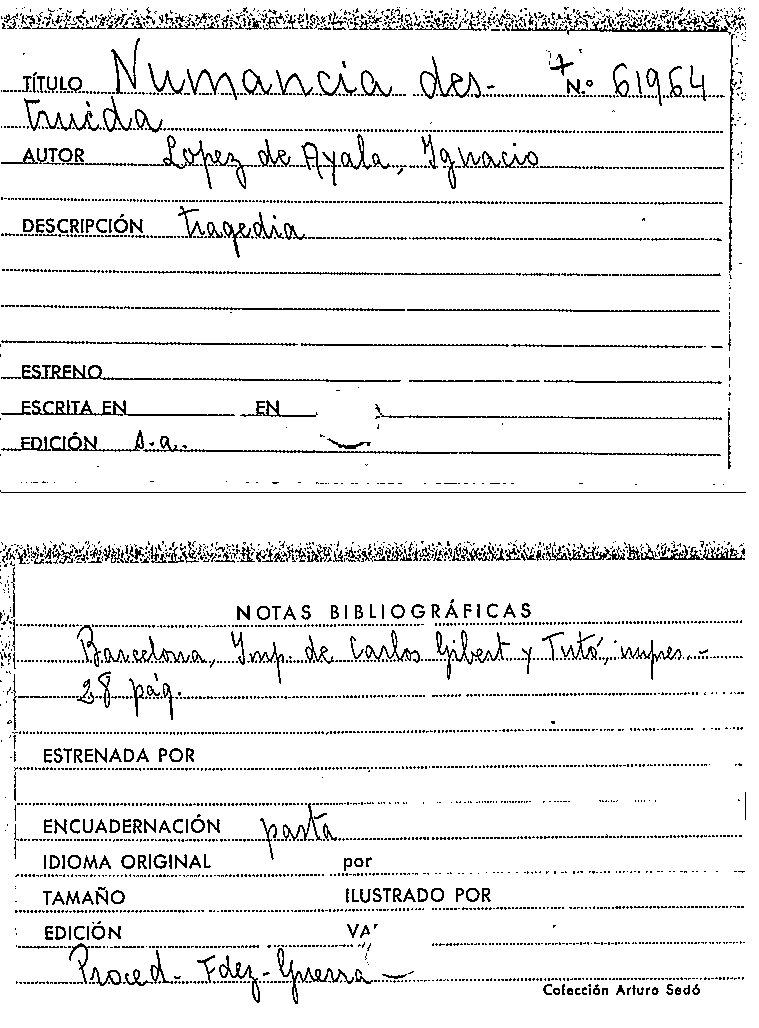 TÍTULO Numancia des- + N.º 61964
truida
AUTOR Lopez de Ayala, Ignacio
DESCRIPCIÓN tragedia
ESTRENO
ESCRITA EN EN
EDICIÓN s.a.
NOTAS BIBLIOGRÁFICAS
Barcelona, Imp. de Carlos Gibert y Tutó, impres.-
28 pág.
ESTRENADA POR
ENCUADERNACIÓN pasta
IDIOMA ORIGINAL por
TAMAÑO ILUSTRADO POR
EDICIÓN VA
Proced- Fdez-Guerra
Colección Arturo Sedó